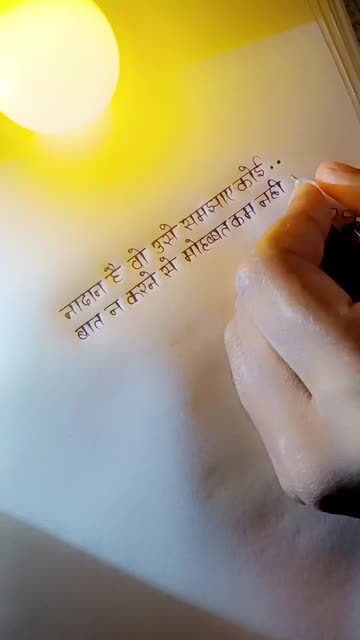 नादान है वो उसे समझाए कोई..
बात न करने से मोहब्बत कम नही